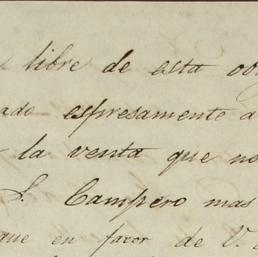 libre de esta
espresamente a
la venta que no
S. Campero mas
que en favor de V.